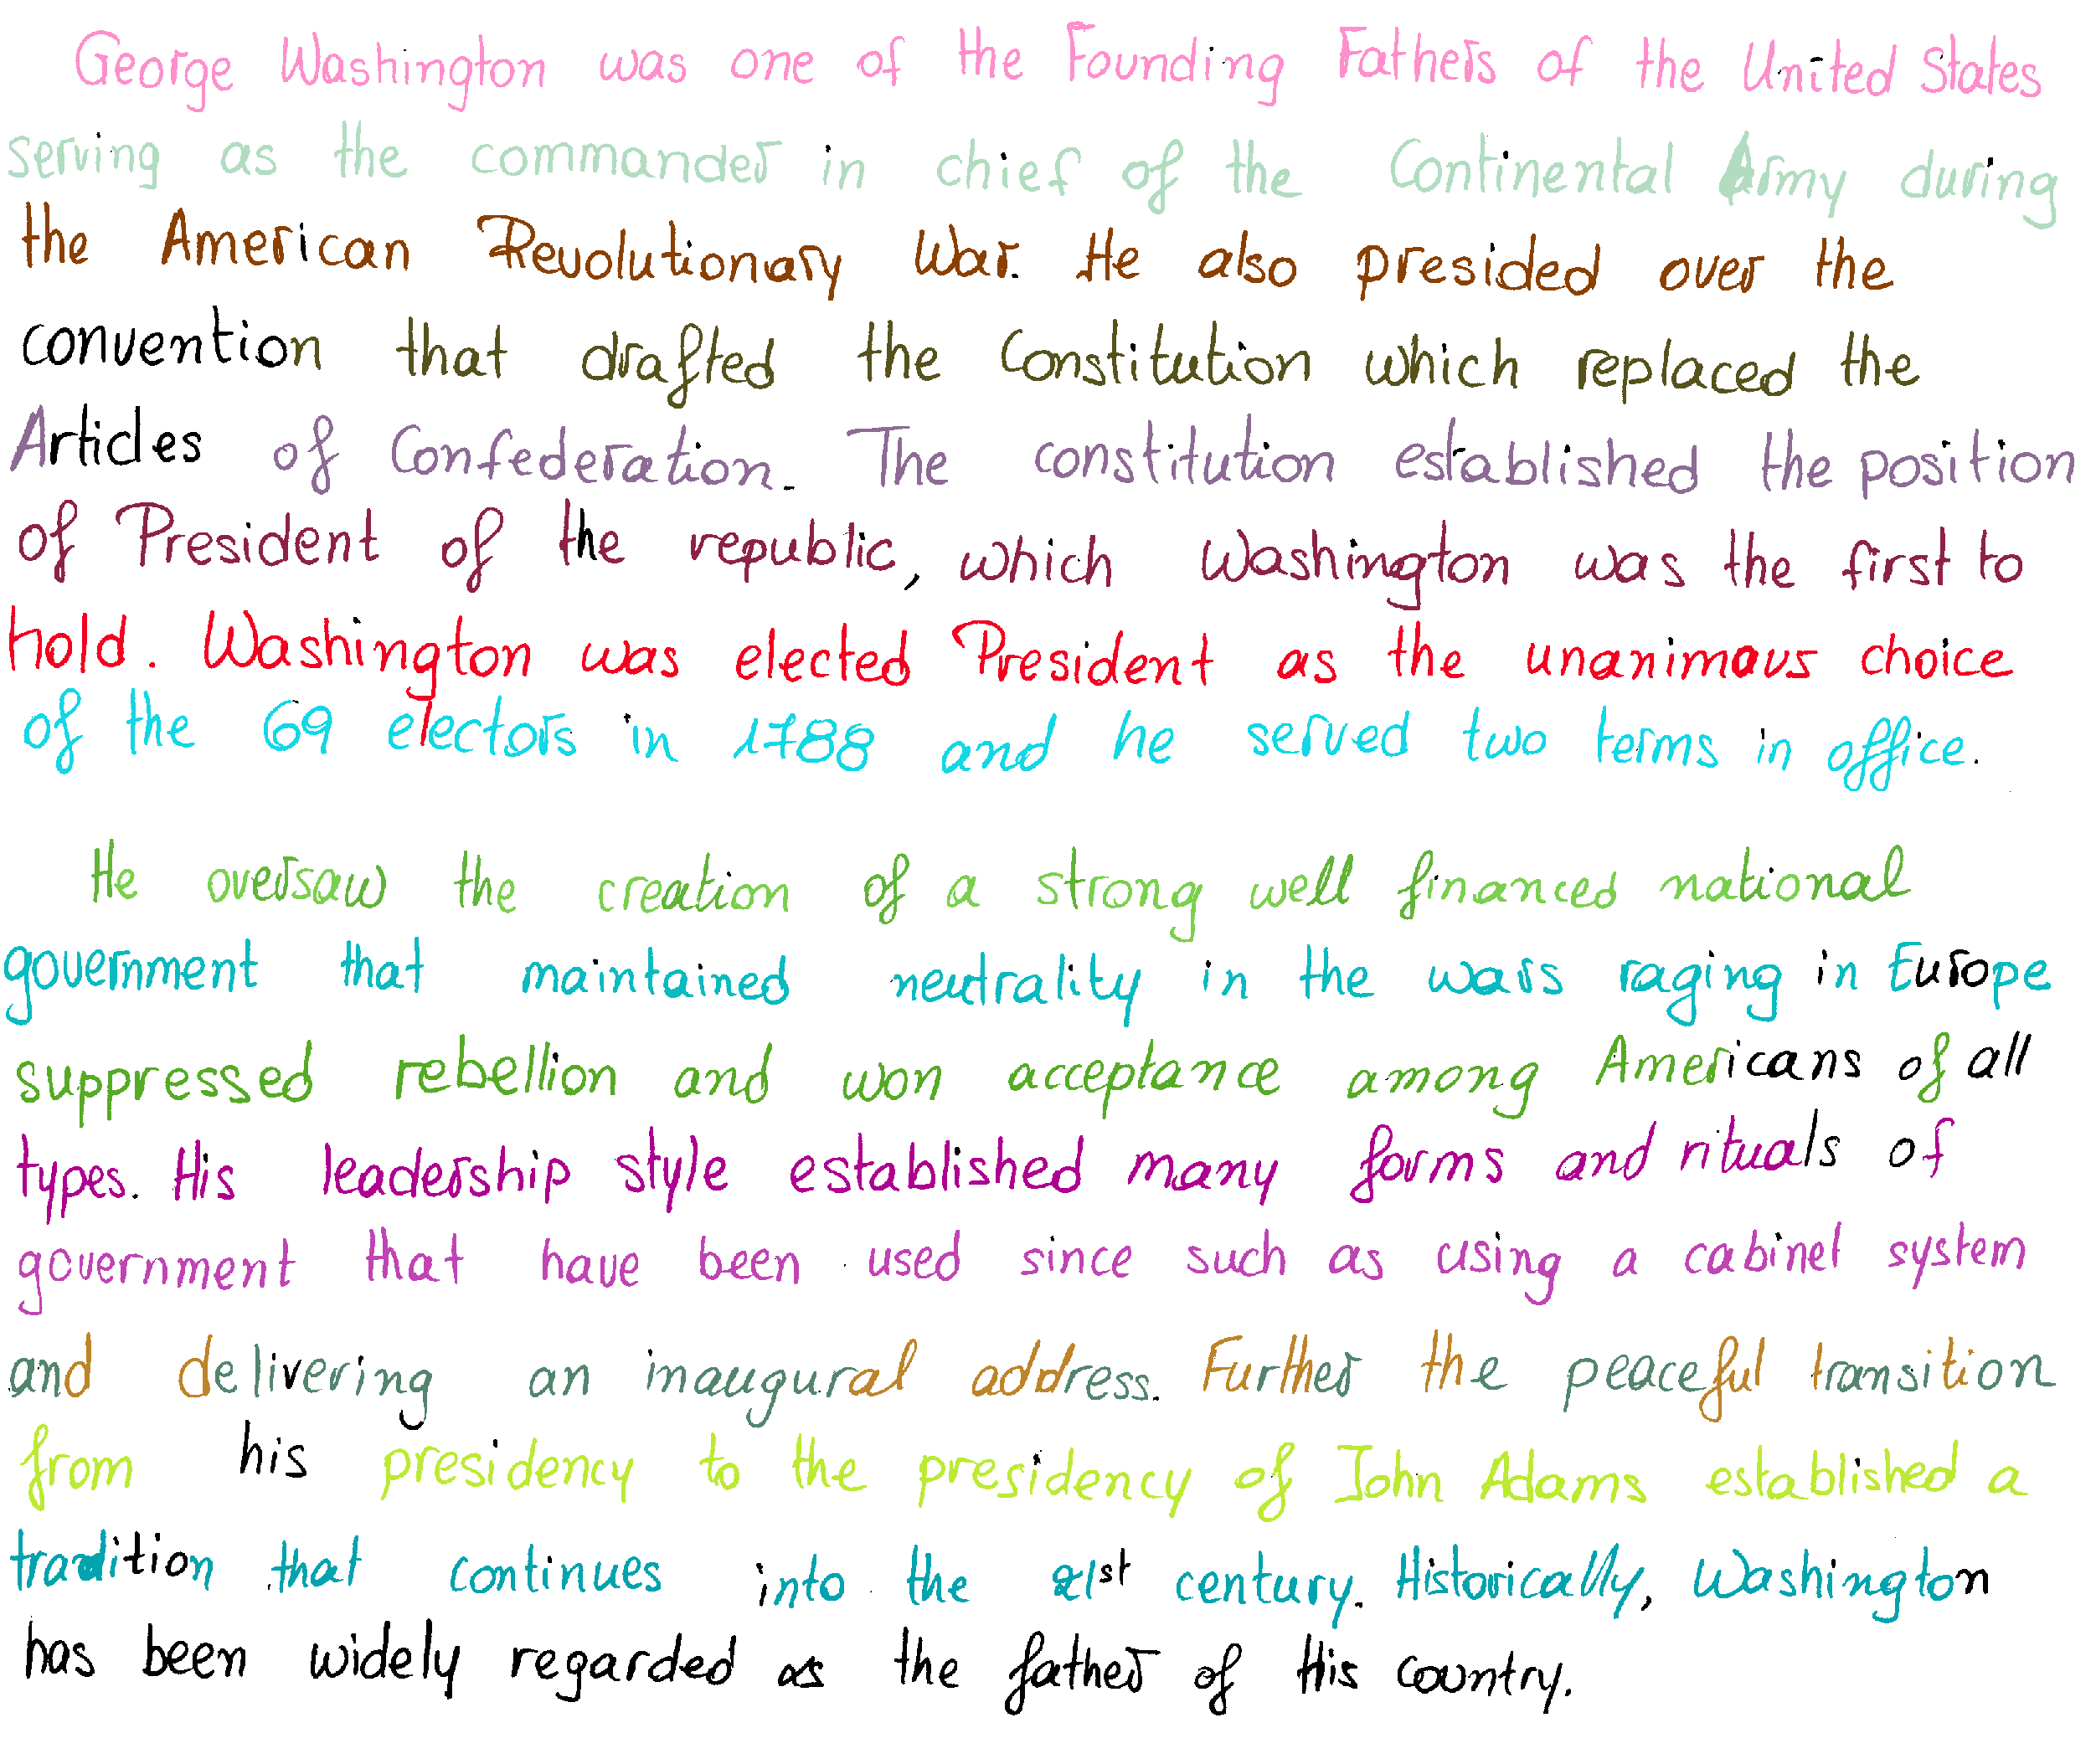 George Washington was one of the Founding Fathers of the United States
serving as the commander in chief of the Continental Army during
the American Revolutionary War. He also presided over the
convention that drafted the Constitution which replaced the
Articles of Confederation. The constitution established the position
of President of the republic, which Washington was the first to
hold. Washington was elected President as the unanimous choice
of the 69 electors in 1788 and he served two terms in office.
He oversaw the creation of a strong well financed national
government that maintained neutrality in the wars raging in Europe
suppressed rebellion and won acceptance among Americans of all
types. His leadership style established many forms and rituals of
government that have been used since such as using a cabinet system
and delivering an inaugural address. Further the peaceful transition
from his presidency to the presidency of John Adams established a
tradition that continues into the 21st century. Historically, Washington
has been widely regarded as the father of His country.